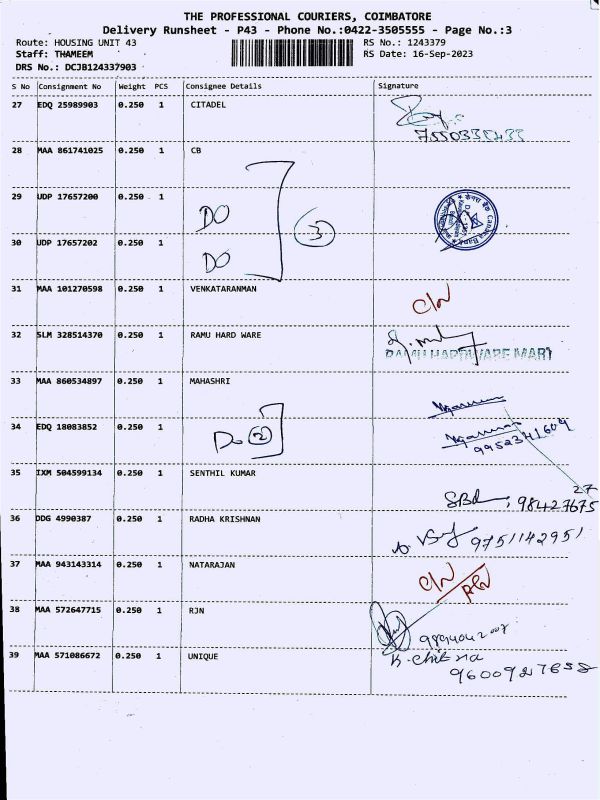 THE PROFESSIONAL COURIERS, COIMBATORE
Delivery Runsheet - P43 - Phone No.:0422-3505555 - Page No.:3
Route: HOUSING UNIT 43 RS No.: 1243379
Staff: THAMEEM RS Date: 16-Sep-2023
DRS No.: DCJB124337903
S No Consignment No Weight PCS Consignee Details Signature
27 EDQ 25989903 0.250 1 CITADEL
28 MAA 861741025 0.250 1 CB
29 UDP 17657200 0.250 1 DO
3
Canara Bank
30 UDP 17657202 0.250 1 DO
31 MAA 101270598 0.250 1 VENKATARANMAN C/N
32 SLM 328514370 0.250 1 RAMU HARD WARE
RAMU HARDWARE MART
33 MAA 860534897 0.250 1 MAHASHRI
34 EDQ 18083852 0.250 1 Do 2
9952341609
35 IXM 504599134 0.250 1 SENTHIL KUMAR
27
98427675
36 DDG 4990387 0.250 1 RADHA KRISHNAN
9751142951
37 MAA 943143314 0.250 1 NATARAJAN C/N
38 MAA 572647715 0.250 1 RJN
39 MAA 571086672 0.250 1 UNIQUE K. Chitra
9600927658